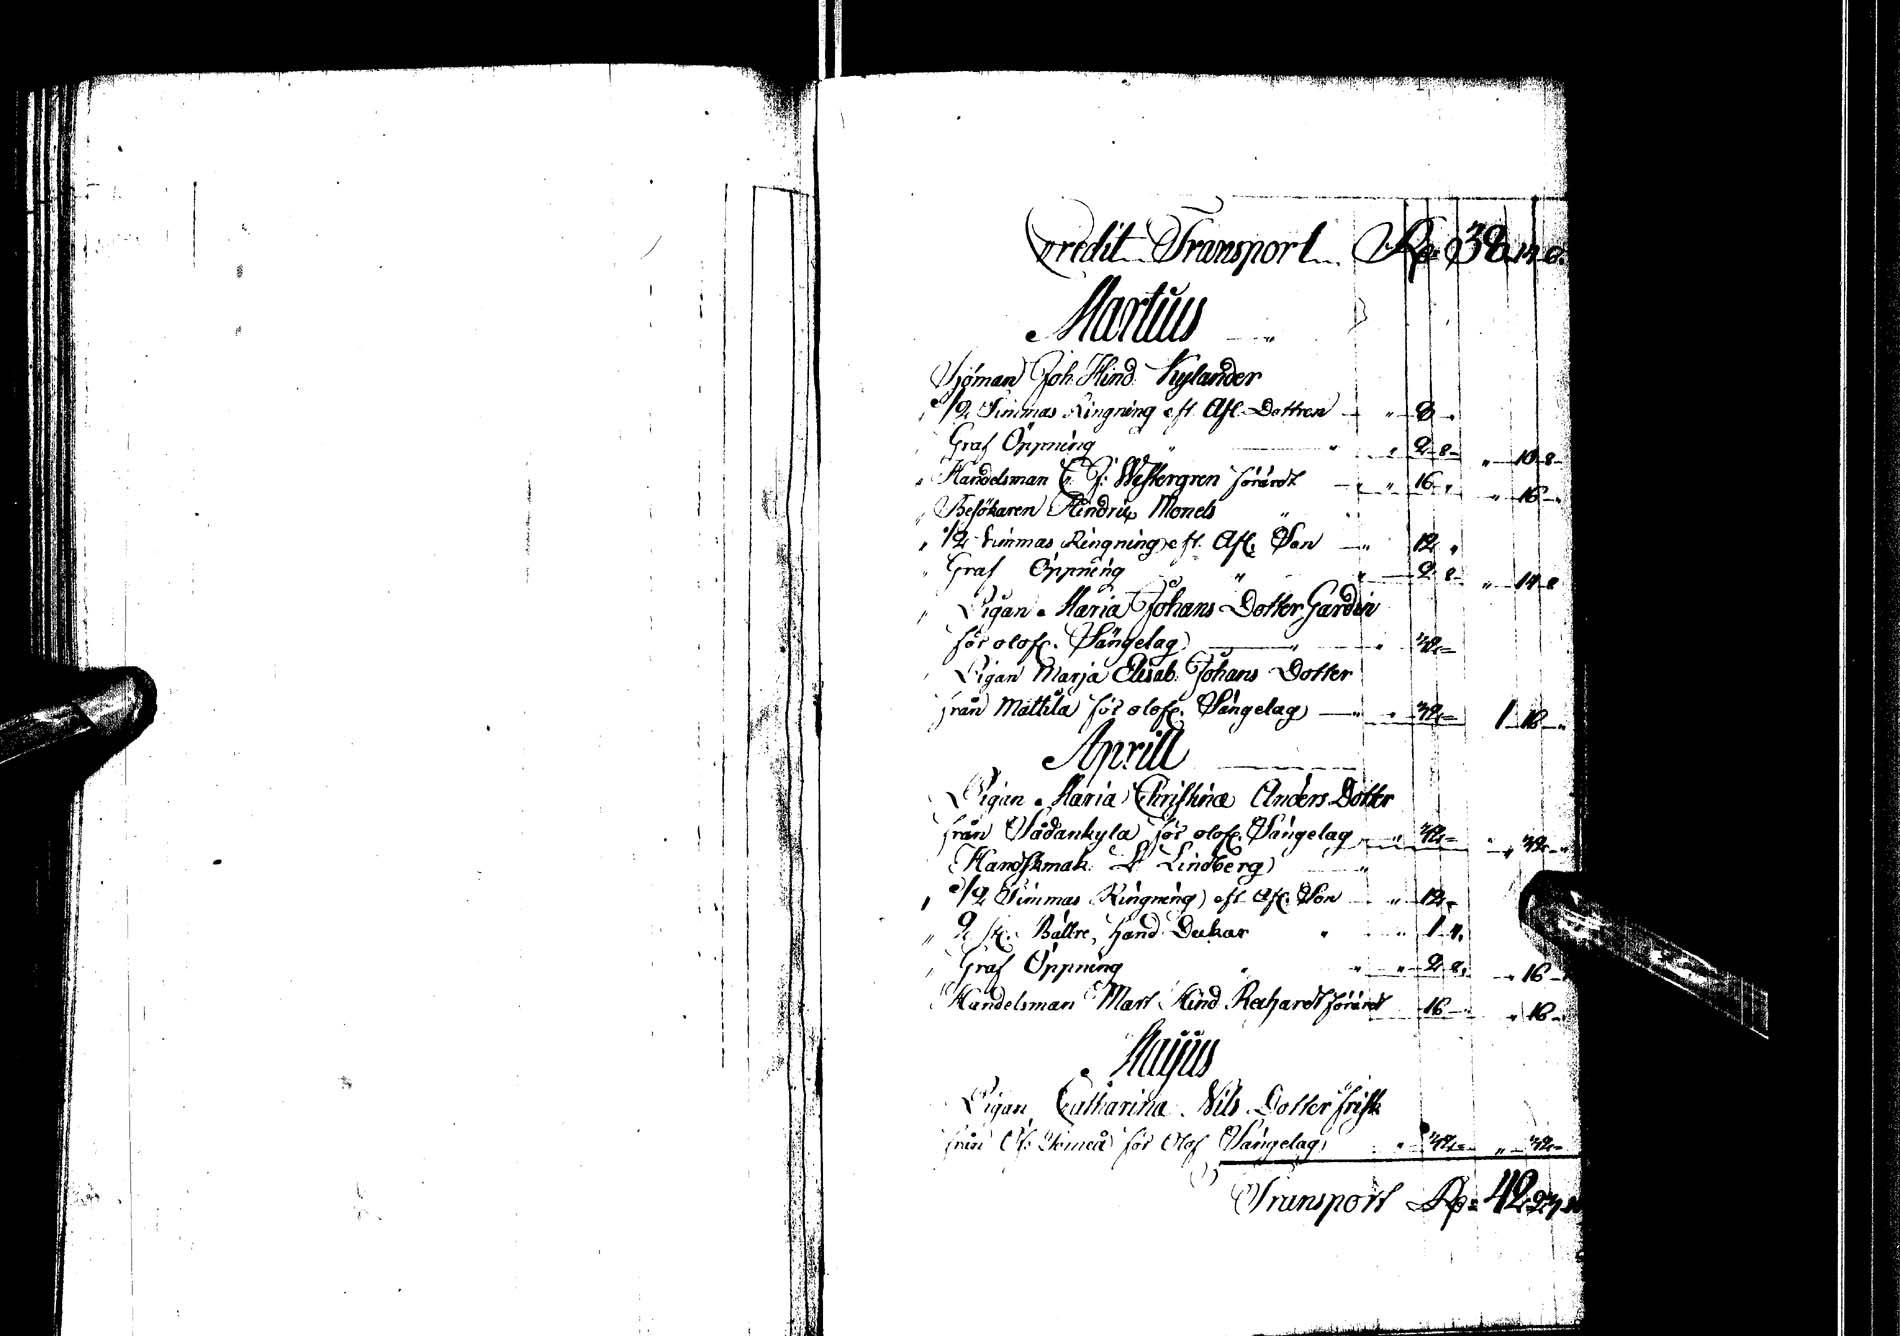 Credit Transport Rd 38 14 6
Martius
Sjöman Joh Hind Kylander
1/2 Timmas Ringning eft Afl. Dottren " 8 "
Graf Öppning " " 2 8 " 10 8
Handelsman C. J. Westergren förärdt " 16 " " 16 "
Besökaren Hindric Monels
1/2 Timmas Ringning eft Afl. Son " 12 "
Graf Öppning " " 2 8 " 14 8
Pigan Maria Johans Dotter Gardin
för olofl. Sängelag " 32
Pigan Marja Elisab. Johans Dotter
från Mattila för olofl. Sängelag " 32 1 16 "
Aprill
Pigan Maria Christina Anders Dotter
från för olofl. Sängelag " 32 " 32 "
Handskmak. Lindberg
1/2 Timmas Ringning eft Afl. Son " 12
2 st. Bättre hand Dukar " " 1 4
Graf Öppning " " 2 8 " 16
Handelsman Mart Hind förärdt 16 " 16
Majus
Pigan Catharina Nils Dotter Frisk
från för Olof Sängelag " 32 " 32
Transport Rd 42